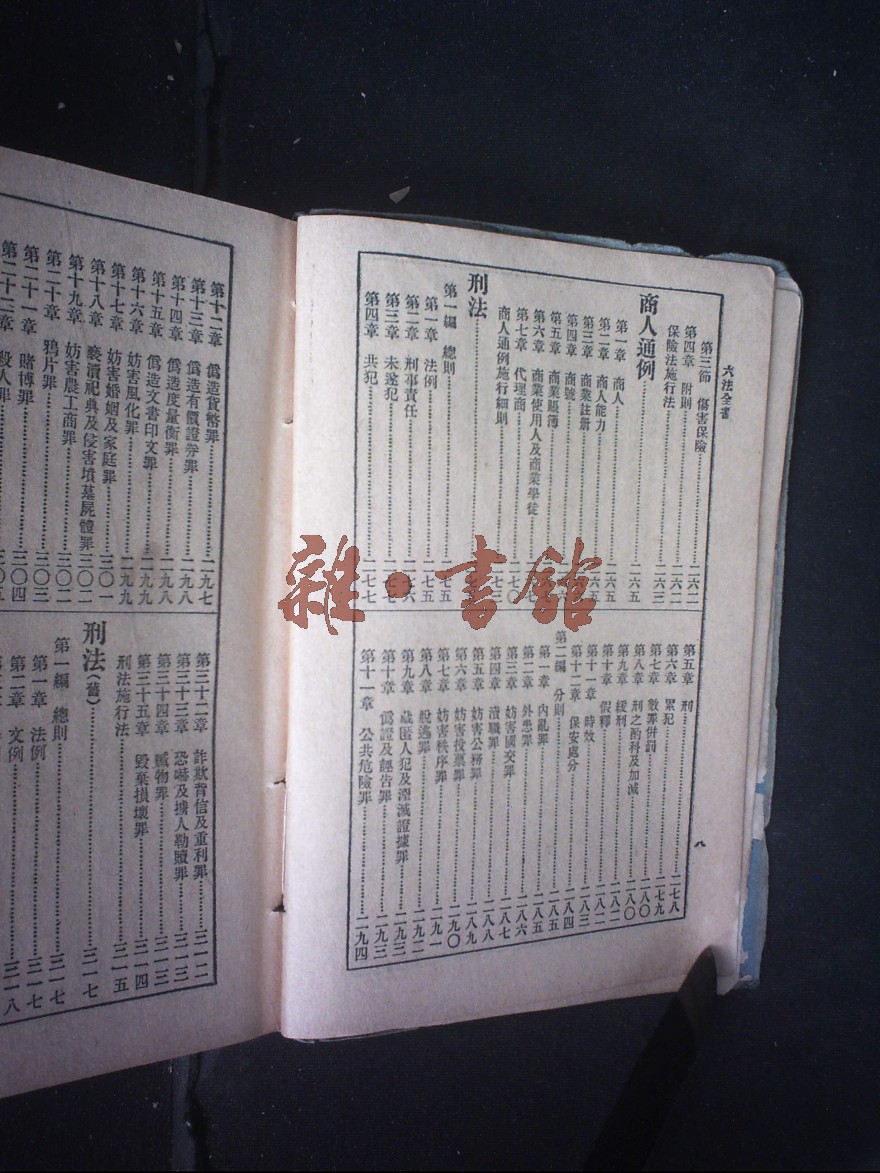 六法全書
八
第三節 傷害保險……二六二
第四章 附則……二六二
保險法施行法……二六三
商人通例……二六五
第一章 商人……二六五
第二章 商人能力……二六五
第三章 商業註冊……
第四章 商號……
第五章 商業賬簿……
第六章 商業使用人及商業學徒……
第七章 代理商……二七〇
商人通例施行細則……
刑法……二七五
第一編 總則……二七五
第一章 法例……二七五
第二章 刑事責任……二七六
第三章 未遂犯……二七七
第四章 共犯……二七七
第五章 刑……二七八
第六章 累犯……二七九
第七章 數罪併罰……二八〇
第八章 刑之酌科及加減……二八〇
第九章 緩刑……二八二
第十章 假釋……二八二
第十一章 時效……二八三
第十二章 保安處分……二八四
第二編 分則……二八五
第一章 內亂罪……二八五
第二章 外患罪……二八六
第三章 妨害國交罪……二八七
第四章 瀆職罪……二八八
第五章 妨害公務罪……二八九
第六章 妨害投票罪……二九〇
第七章 妨害秩序罪……二九一
第八章 脫逃罪……二九二
第九章 藏匿人犯及湮滅證據罪……二九二
第十章 僞證及誣告罪……二九三
第十一章 公共危險罪……二九四
第十二章 僞造貨幣罪……二九七
第十三章 僞造有價證券罪……二九八
第十四章 僞造度量衡罪……二九八
第十五章 僞造文書印文罪……二九九
第十六章 妨害風化罪……二九九
第十七章 妨害婚姻及家庭罪……三〇一
第十八章 褻瀆祀典及侵害墳墓屍體罪……三〇二
第十九章 妨害農工商罪……三〇二
第二十章 鴉片罪……三〇三
第二十一章 賭博罪……三〇四
第二十二章 殺人罪……三〇五
第三十二章 詐欺背信及重利罪……三一二
第三十三章 恐嚇及擄人勒贖罪……三一三
第三十四章 贓物罪……三一三
第三十五章 毀棄損壞罪……三一四
刑法施行法……三一五
刑法(舊)……三一七
第一編 總則……三一七
第一章 法例……三一七
第二章 文例……三一八
雜·書館